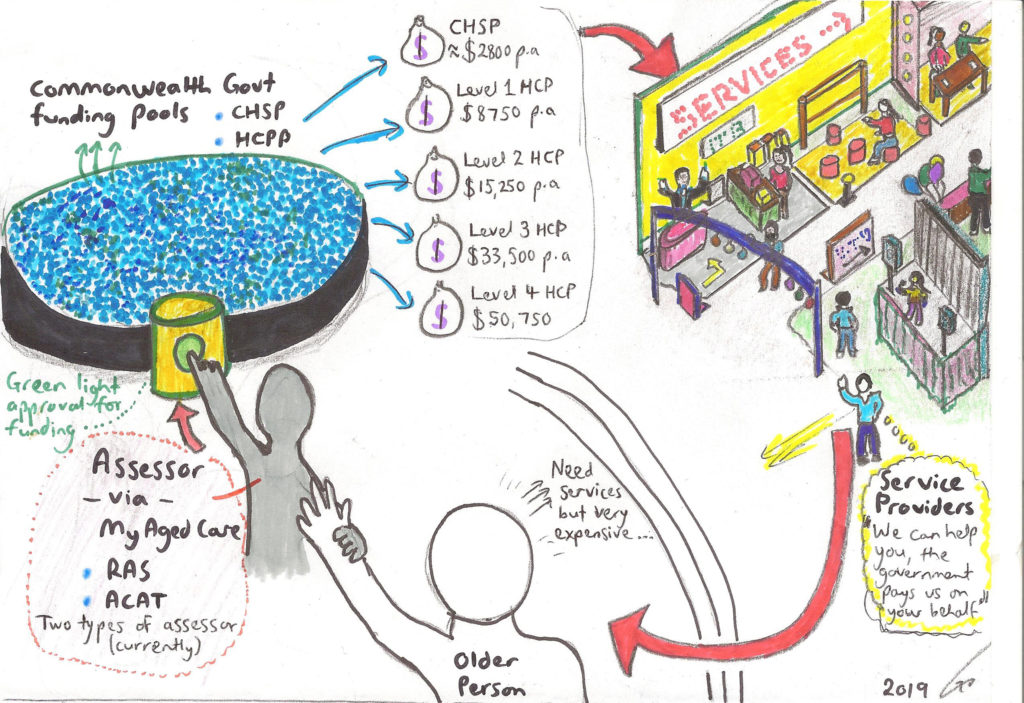 Commonwealth Govt
funding pools
• CHSP
• HCPP
CHSP
≈ $2800 p.a
Level 1 HCP
$8750 p.a
Level 2 HCP
$15,250 p.a
Level 3 HCP
$33,500 p.a
Level 4 HCP
$50,750
$
$
$
$
$
SERVICES
Green light
approval for
funding
Assessor
– via –
My Aged Care
• RAS
• ACAT
Two types of assessor
(currently)
Need
services
but very
expensive...
Older
Person
Service
Providers
"We can help
you, the
government
pays us on
your behalf"
2019